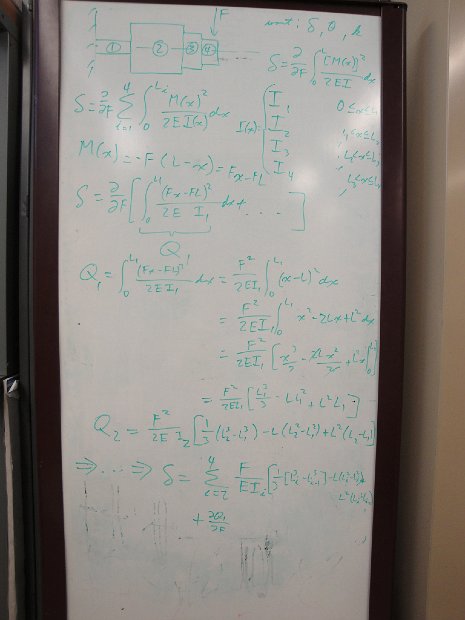 F
① ② ③ ④
want: δ, θ, k
δ = ∂/∂F ∫₀ᴸ [M(x)]²/2EI dx
δ = ∂/∂F Σᵢ₌₁⁴ ∫₀^Lᵢ M(x)²/2EI(x) dx
I(x): { I₁ 0≤x≤L₁
I₂ L₁≤x≤L₂
I₃ L₂≤x≤L₃
I₄ L₃≤x≤L₄
M(x) = -F(L-x) = Fx-FL
δ = ∂/∂F [ ∫₀^L₁ (Fx-FL)²/2E I₁ dx + . . . . ]
Q₁
Q₁ = ∫₀^L₁ (Fx-FL)²/2EI₁ dx = F²/2EI₁ ∫₀^L₁ (x-L)² dx
= F²/2EI₁ ∫₀^L₁ x²-2Lx+L² dx
= F²/2EI₁ [x³/3 - 2Lx²/2 + L²x]₀^L₁
= F²/2EI₁ [L₁³/3 - LL₁² + L²L₁]
Q₂ = F²/2E I₂ [1/3(L₂³-L₁³) - L(L₂²-L₁²) + L²(L₂-L₁)]
⇒ ... ⇒ δ = Σᵢ₌₂⁴ F/EIᵢ [1/3[Lᵢ³-Lᵢ₋₁³] - L(Lᵢ²-Lᵢ₋₁²) +
L²(Lᵢ-Lᵢ₋₁)
+ ∂Q₁/∂F